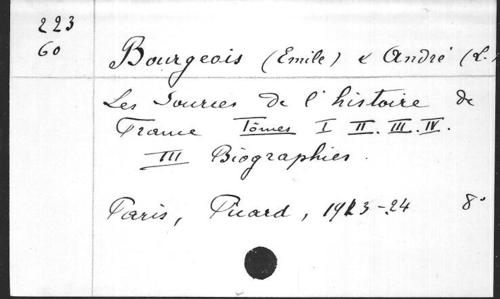 223
60
Bourgeois (Emile) & André (L.)
Les Sources de l'histoire de
France Tômes I II. III. IV.
III Biographies.
Paris, Picard, 1913-24 8°